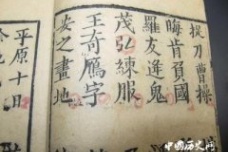 捉刀曹操
晦肯負國
羅友逢鬼
茂弘練服
王奇鴈字
安之畫地
平原十日
中国历史网